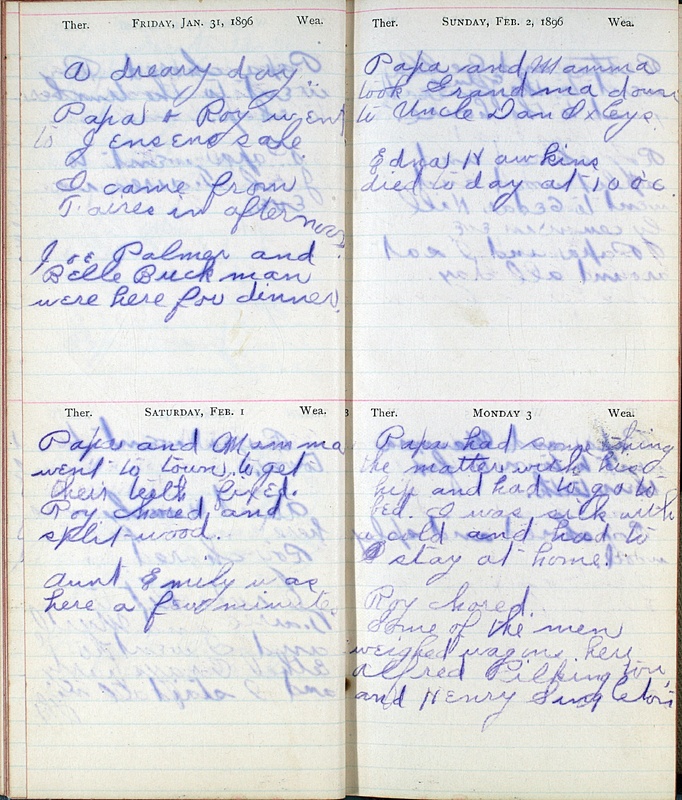 Ther. FRIDAY, JAN. 31, 1896 Wea.
A dreary day.
Papa & Roy went
to Jensens sale
I came from
Taires in afternoon.
Joe Palmer and
Belle Buckman
were here for dinner.
Ther. SATURDAY, FEB. 1 Wea.
Papa and Mamma
went to town to get
their teeth fixed.
Roy chored and
split wood.
Aunt Emily was
here a few minutes
Ther. SUNDAY, FEB. 2, 1896 Wea.
Papa and Mamma
took Grandma down
to Uncle Dan Ixleys.
Edna Hawkins
died to day at 10 oc.
3 Ther. MONDAY 3 Wea.
Papa had something
the matter with his
hip and had to go to
bed. I was sick with
a cold and had to
stay at home.
Roy chored.
Some of the men
weighed wagons here
Alfred Pilkington,
and Henry Singleton